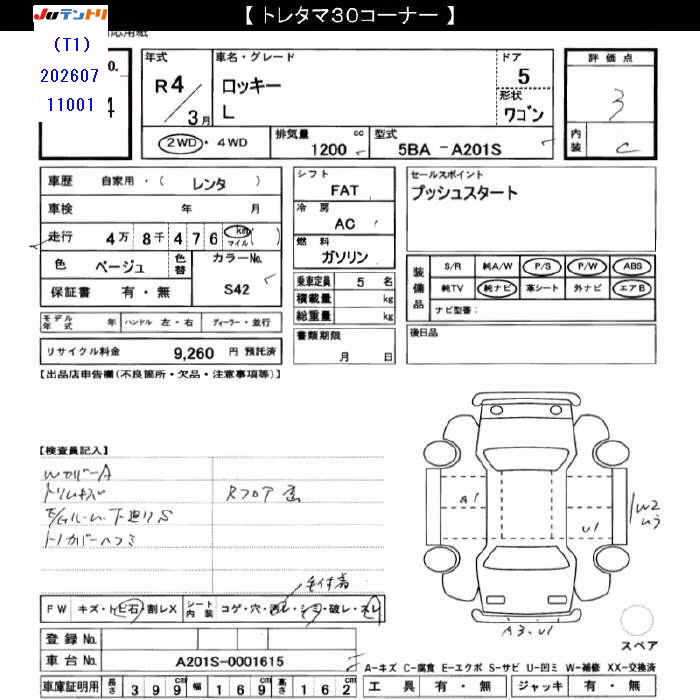 【 トレタマ３０コーナー 】
JUテントリ
応用紙
(T1)
202607
11001
年式 R4/3月
車名・グレード ロッキー L
ドア 5
形状 ワゴン
評価点 3
内装 C
2WD・4WD
排気量 1200 cc
型式 5BA -A201S
車歴 自家用・( レンタ )
車検 年 月
走行 4万 8千 4 7 6 km マイル ( )
色 ベージュ 色替 カラーNo. S42
保証書 有・無
シフト FAT
冷房 AC
燃料 ガソリン
乗車定員 5 名
積載量 kg
総重量 kg
書類期限 月 日
セールスポイント
プッシュスタート
装備品 S/R 純A/W P/S P/W ABS
純TV 純ナビ 革シート 外ナビ エアB
ナビ型番:
後日品
モデル年式 年 ハンドル 左・右 ディーラー・並行
リサイクル料金 9,260 円 預託済
【出品店申告欄(不良箇所・欠品・注意事項等)】
【検査員記入】
WカバーA
トリムキズ
下廻りS
トノカバーヘコミ
Rフロア
A1
U1
W2
A3.U1
FW キズ・トビ石・割レX シート内装 コゲ・穴・汚レ・シミ・破レ・スレ
登録No.
車台No. A201S-0001615
スペア
A-キズ C-腐食 E-エクボ S-サビ U-凹ミ W-補修 XX-交換済
車庫証明用 長さ 399cm 幅 169cm 高さ 162cm
工具 有・無 ジャッキ 有・無